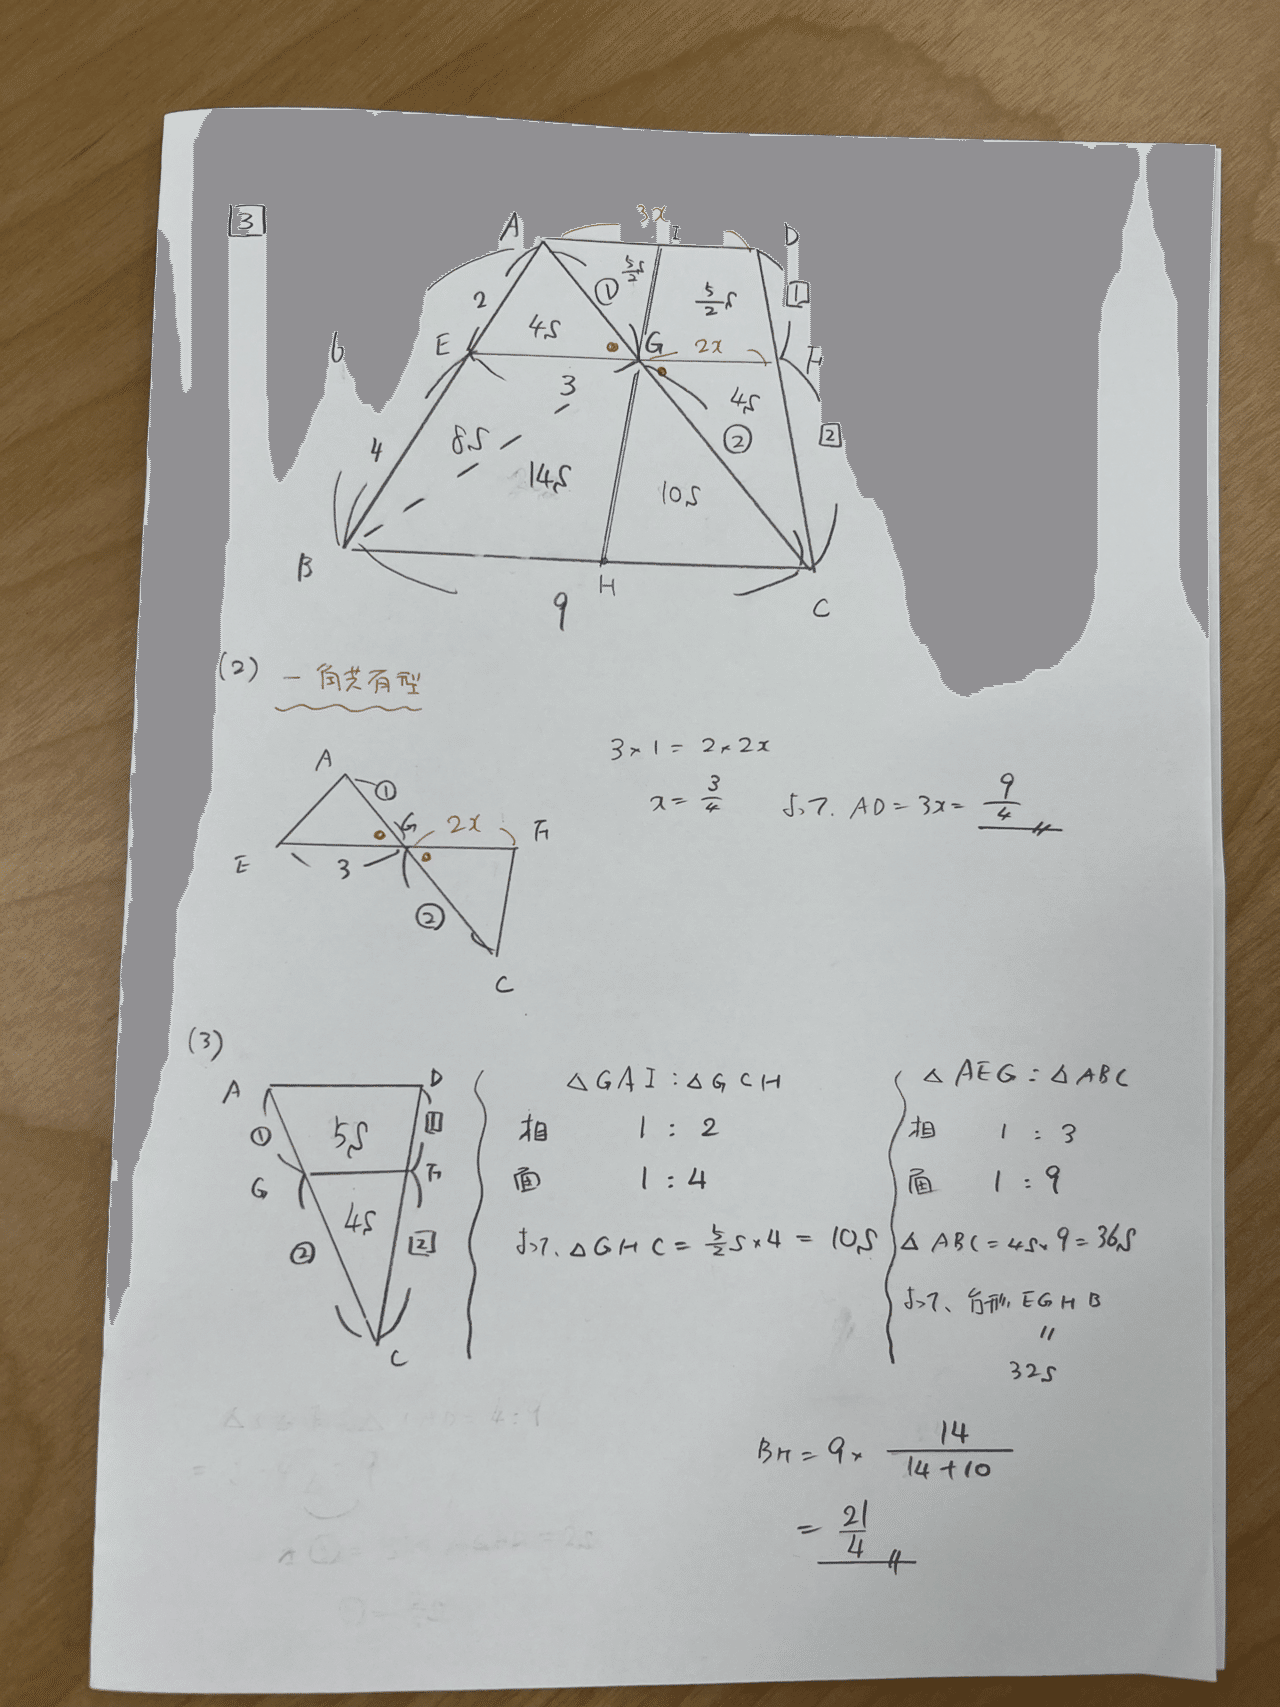 3
A 3x I D
2 ① 5/2 S 5/2 S 1
E 4S G 2x F
6 3 4S
4 8S ② 2
14S 10S
B H C
9
(2) 一角共有型
A ①
E 3 G 2x F
②
C
3×1=2×2x
x=3/4 よって、AD=3x=9/4
(3)
A D
① 5S 1
G F
② 4S 2
C
△GAI:△GCH
相 1:2
面 1:4
よって、△GHC=5/2 S×4=10S
△AEG:△ABC
相 1:3
面 1:9
△ABC=4S×9=36S
よって、台形EGHB
〃
32S
BH=9×14/(14+10)
=21/4